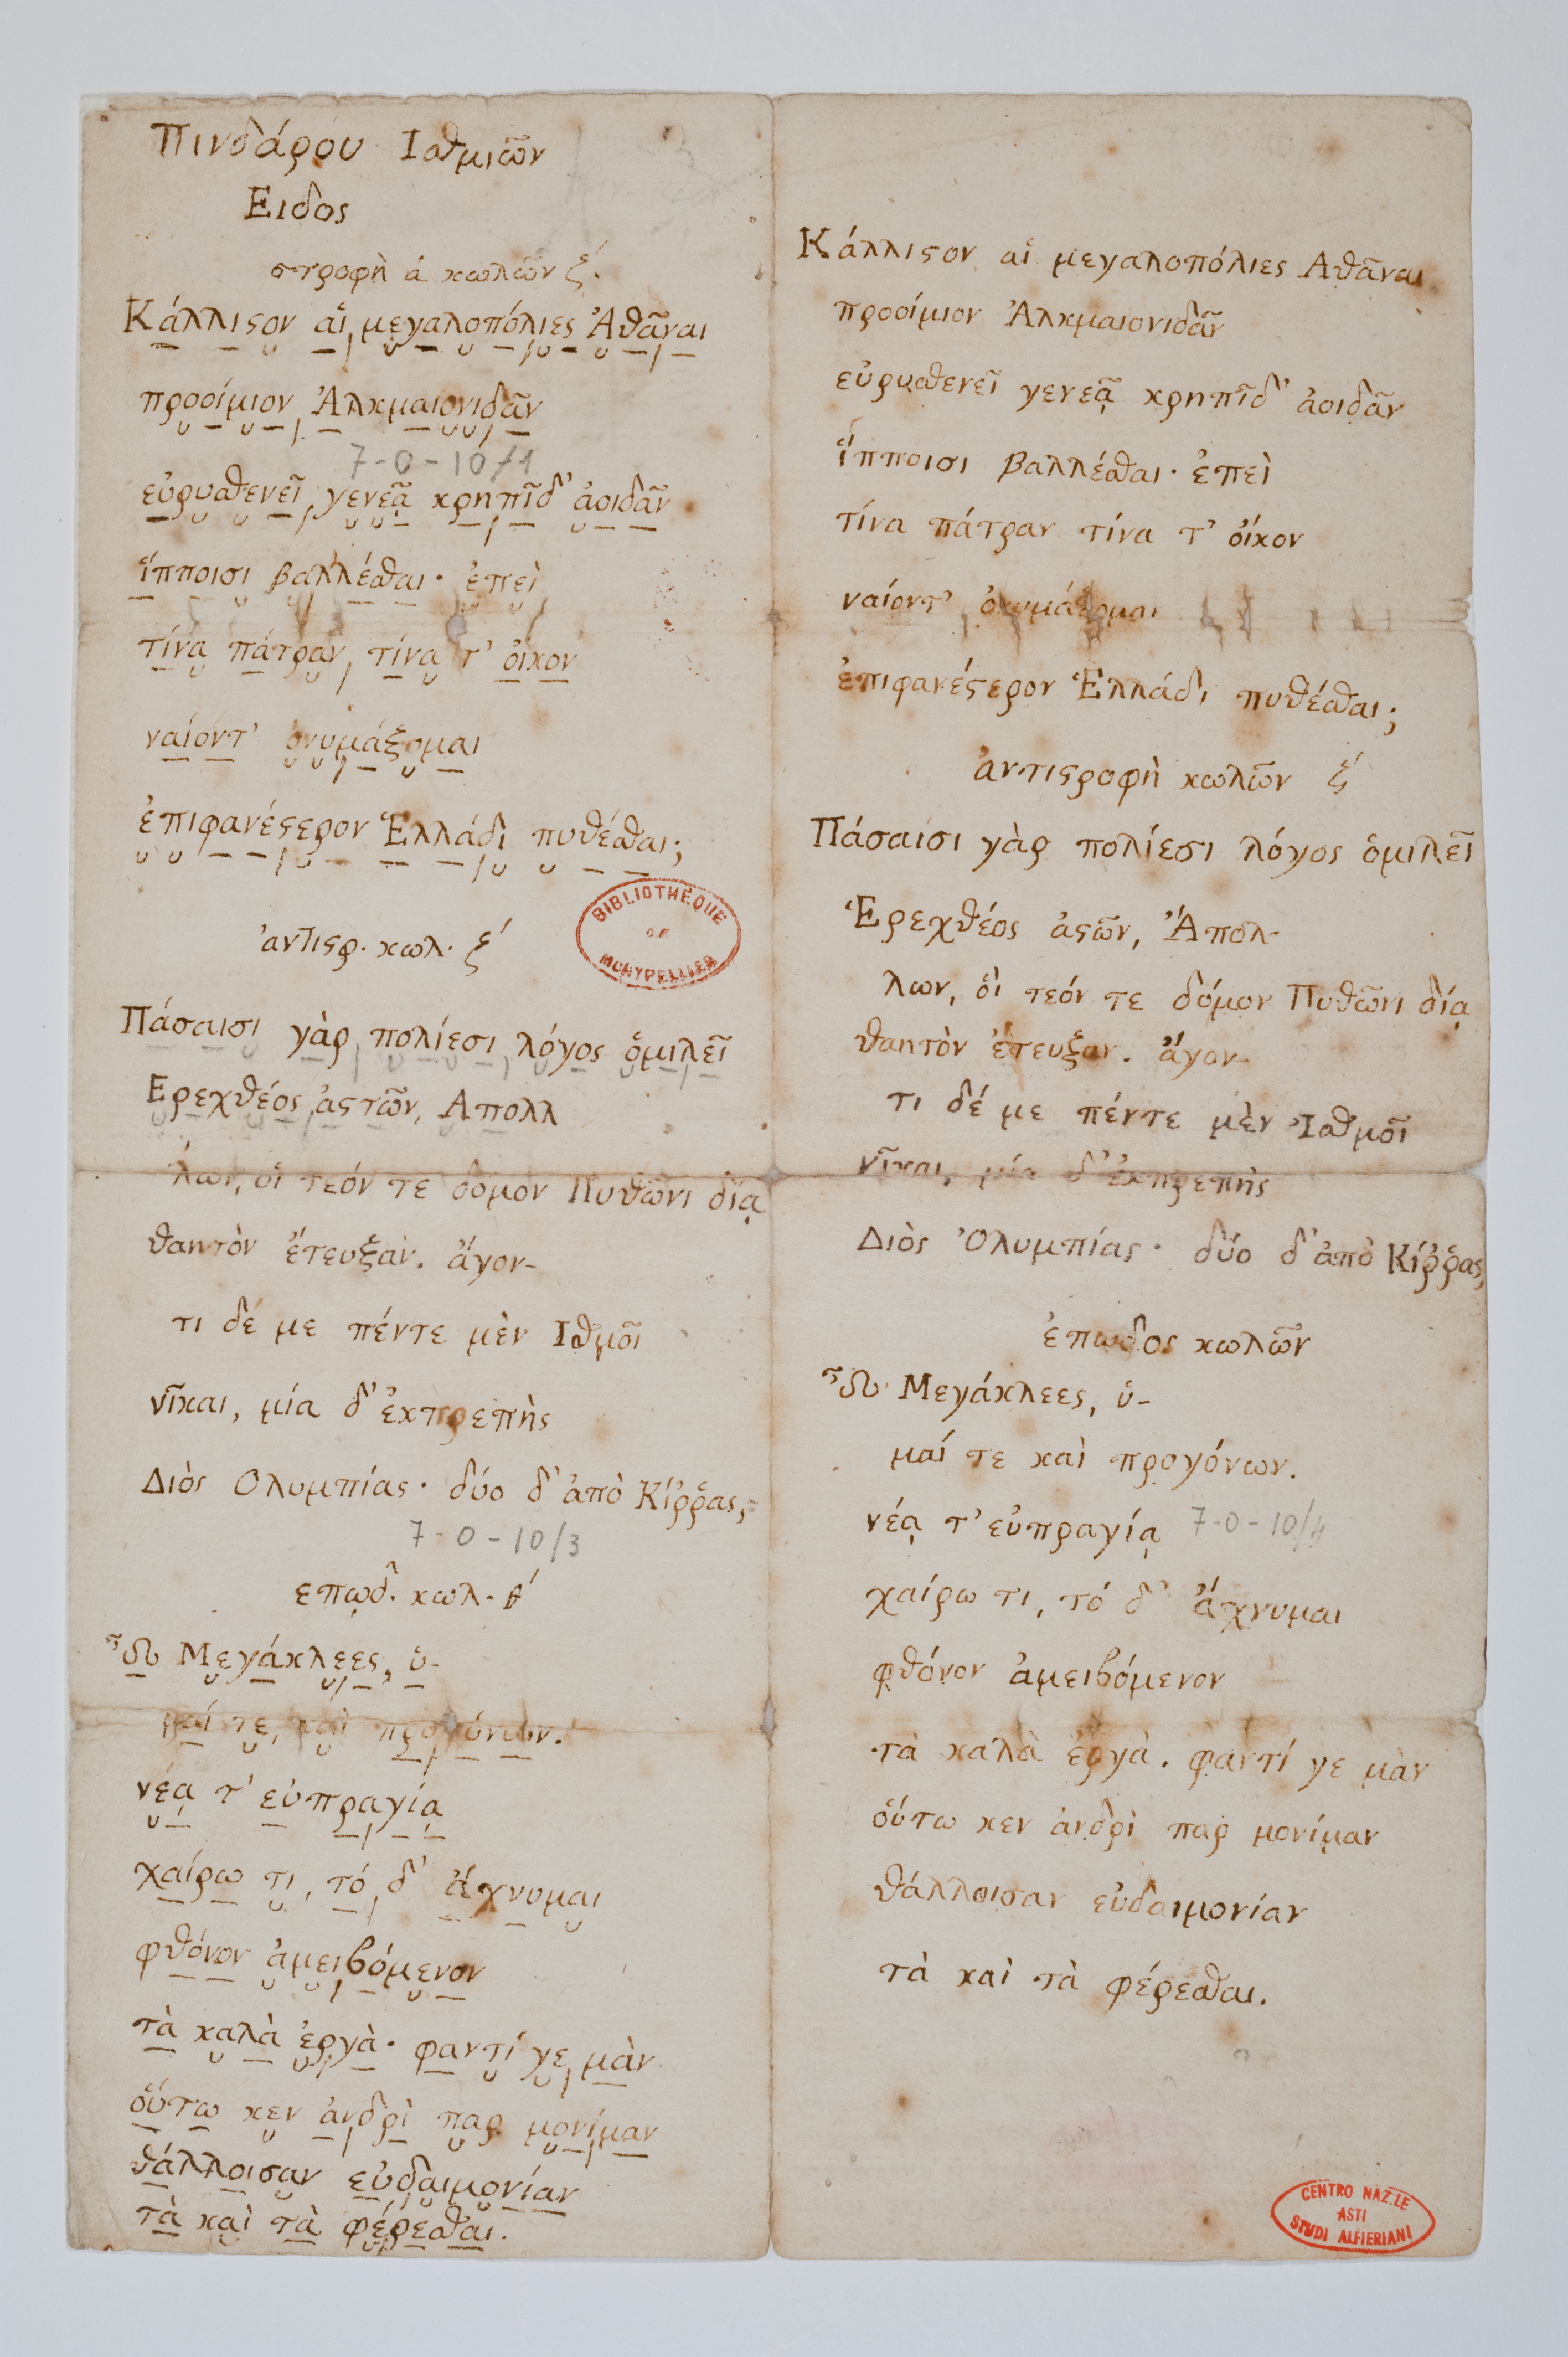 Πινδάρου Ισθμιῶν
Ειδος
στροφὴ ά κωλῶν ζ́.
Κάλλιϛον αἱ μεγαλοπόλιες Ἀθᾶναι
προοίμιον Ἀλκμαιονιδᾶν
7-0-10/1
εὐρυσθενεῖ γενεᾷ κρηπῖδ' ἀοιδᾶν
ἵπποισι βαλλέσθαι· ἐπεὶ
τίνα πάτραν, τίνα τ' οἶκον
ναίοντ' ὀνυμάξομαι
ἐπιφανέϛερον Ἑλλάδι πυθέσθαι;
BIBLIOTHÈQUE
DE
MONTPELLIER
ἀντιϛρ. κωλ. ζ́
Πάσαισι γὰρ πολίεσι λόγος ὁμιλεῖ
Ερεχθέος ἀϛτῶν, Απολλ
λων, οἱ τεόν τε δόμον Πυθῶνι δίᾳ
θαητὸν ἔτευξαν. ἄγον-
τι δέ με πέντε μὲν Ισθμοῖ
νῖκαι, μία δ' ἐκπρεπὴς
Διὸς Ολυμπίας· δύο δ' ἀπὸ Κίῤῥας,
7-0-10/3
επῳδ. κωλ. θ́
ὦ Μεγάκλεες, ὑ-
μαί τε καὶ προγόνων.
νέᾳ τ' εὐπραγίᾳ
χαίρω τι, τό δ' ἄχνυμαι
φθόνον ἀμειβόμενον
τὰ καλὰ ἐργὰ. φαντί γε μὰν
οὕτω κεν ἀνδρὶ παρ μονίμαν
θάλλοισαν εὐδαιμονίαν
τὰ καὶ τὰ φέρεσθαι.
Κάλλιϛον αἱ μεγαλοπόλιες Αθᾶναι
προοίμιον Ἀλκμαιονιδᾶν
εὐρυσθενεῖ γενεᾷ κρηπῖδ' ἀοιδᾶν
ἵπποισι βαλλέσθαι· ἐπεὶ
τίνα πάτραν τίνα τ' οἶκον
ναίοντ' ὀνυμάξομαι
ἐπιφανέϛερον Ἑλλάδι πυθέσθαι;
ἀντιϛροφὴ κωλῶν ζ́
Πάσαισι γὰρ πολίεσι λόγος ὁμιλεῖ
Ἐρεχθέος ἀϛῶν, Ἄπολ-
λων, οἱ τεόν τε δόμον Πυθῶνι δίᾳ
θαητὸν ἔτευξαν. ἄγον-
τι δέ με πέντε μὲν Ἰσθμοῖ
νῖκαι, μία δ' ἐκπρεπὴς
Διὸς Ὀλυμπίας· δύο δ' ἀπὸ Κίῤῥας,
ἐπωδος κωλῶν
ὦ Μεγάκλεες, ὑ-
μαί τε καὶ προγόνων.
νέᾳ τ' εὐπραγίᾳ 7-0-10/4
χαίρω τι, τό δ' ἄχνυμαι
φθόνον ἀμειβόμενον
τὰ καλὰ ἐργὰ. φαντί γε μὰν
οὕτω κεν ἀνδρὶ παρ μονίμαν
θάλλοισαν εὐδαιμονίαν
τὰ καὶ τὰ φέρεσθαι.
CENTRO NAZ.LE
ASTI
STUDI ALFIERIANI